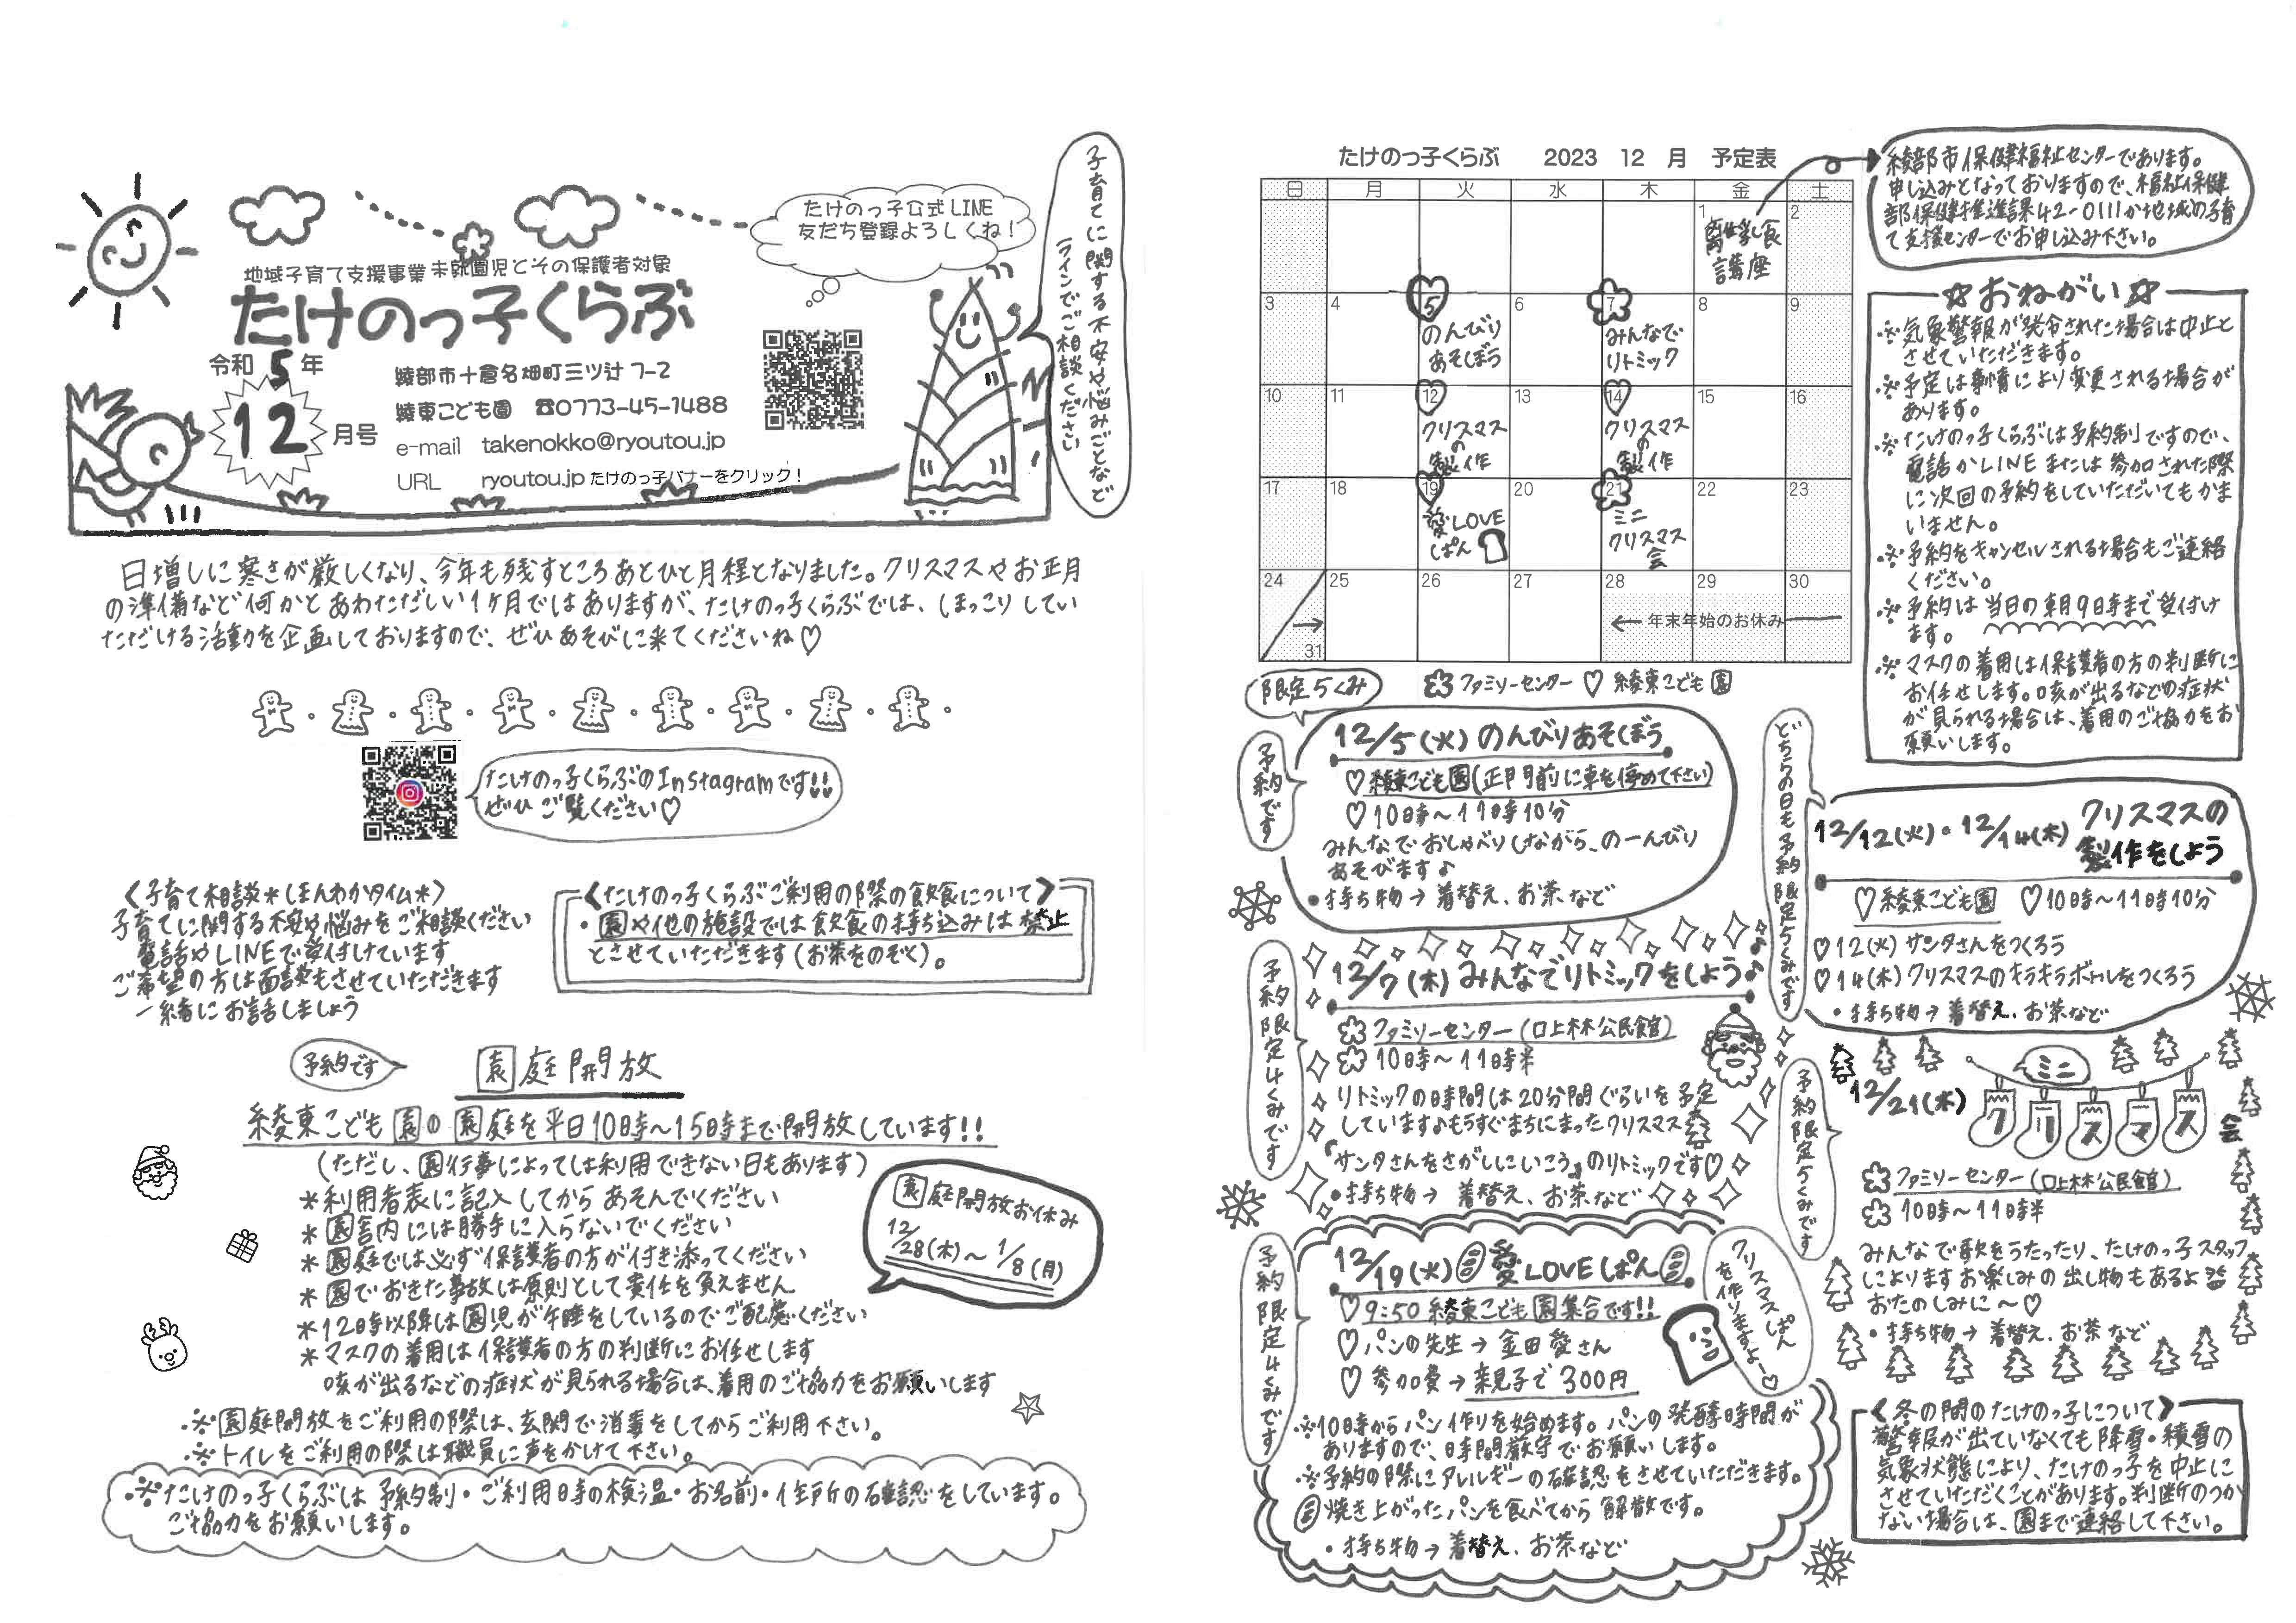 たけのっ子公式LINE
友だち登録よろしくね！
子育てに関する不安や悩みごとなど
ラインでご相談ください
地域子育て支援事業 未就園児とその保護者対象
たけのっ子くらぶ
令和5年
12月号
綾部市十倉名畑町三ツ辻7-2
綾東こども園 ☎0773-45-1488
e-mail takenokko@ryoutou.jp
URL ryoutou.jp たけのっ子バナーをクリック！
日増しに寒さが厳しくなり、今年も残すところあとひと月程となりました。クリスマスやお正月
の準備など何かとあわただしい1ヶ月ではありますが、たけのっ子くらぶでは、ほっこりしてい
ただける活動を企画しておりますので、ぜひあそびに来てくださいね♡
たけのっ子くらぶのInstagramです!!
ぜひご覧ください♡
〈子育て相談＊ほんわかタイム＊〉
子育てに関する不安や悩みをご相談ください
電話やLINEで受付けています
ご希望の方は面談もさせていただきます
一緒にお話しましょう
〈たけのっ子くらぶご利用の際の飲食について〉
・園や他の施設では飲食の持ち込みは禁止
とさせていただきます(お茶をのぞく)。
予約です
園庭開放
綾東こども園の園庭を平日10時～15時まで開放しています!!
(ただし、園行事によっては利用できない日もあります)
＊利用者表に記入してからあそんでください
＊園舎内には勝手に入らないでください
＊園庭では必ず保護者の方が付き添ってください
＊園でおきた事故は原則として責任を負えません
＊12時以降は園児が午睡をしているのでご配慮ください
＊マスクの着用は保護者の方の判断にお任せします
咳が出るなどの症状が見られる場合は、着用のご協力をお願いします
園庭開放お休み
12/28(木)～1/8(月)
※園庭開放をご利用の際は、玄関で消毒をしてからご利用下さい。
※トイレをご利用の際は職員に声をかけて下さい。
※たけのっ子くらぶは予約制・ご利用時の検温・お名前・住所の確認をしています。
ご協力をお願いします。
たけのっ子くらぶ 2023 12 月 予定表
日 月 火 水 木 金 土
1 2
離乳食
講座
3 4 5 6 7 8 9
のんびり
あそぼう
みんなで
リトミック
10 11 12 13 14 15 16
クリスマス
の
製作
クリスマス
の
製作
17 18 19 20 21 22 23
愛LOVE
ぱん
ミニ
クリスマス
会
24 25 26 27 28 29 30
→
31
←年末年始のお休み
ファミリーセンター ♡ 綾東こども園
綾部市保健福祉センターであります。
申し込みとなっておりますので、福祉保健
部保健推進課42-0111か地域の子育
て支援センターでお申し込み下さい。
☆おねがい☆
※気象警報が発令された場合は中止と
させていただきます。
※予定は事情により変更される場合が
あります。
※たけのっ子くらぶは予約制ですので、
電話かLINEまたは参加された際
に次回の予約をしていただいてもかま
いません。
※予約をキャンセルされる場合もご連絡
ください。
※予約は当日の朝9時まで受付け
ます。
※マスクの着用は保護者の方の判断に
お任せします。咳が出るなどの症状
が見られる場合は、着用のご協力をお
願いします。
限定5くみ
予約です
12/5(火)のんびりあそぼう
♡綾東こども園(正門前に車を停めて下さい)
♡10時～11時10分
みんなでおしゃべりしながら、のーんびり
あそびます♪
・持ち物→着替え、お茶など
予約限定4くみです
12/7(木)みんなでリトミックをしよう♪
ファミリーセンター(口上林公民館)
10時～11時半
リトミックの時間は20分間ぐらいを予定
しています♪もうすぐまちにまったクリスマス
「サンタさんをさがしにいこう」のリトミックです♡
・持ち物→着替え、お茶など
予約限定4くみです
12/19(火)愛LOVEぱん
♡9:50綾東こども園集合です!!
♡パンの先生→金田愛さん
♡参加費→親子で300円
クリスマスぱん
を作りますよー♡
※10時からパン作りを始めます。パンの発酵時間が
ありますので、時間厳守でお願いします。
※予約の際にアレルギーの確認をさせていただきます。
焼き上がったパンを食べてから解散です。
・持ち物→着替え、お茶など
どちらの日も予約限定5くみです
12/12(火)・12/14(木) クリスマスの
製作をしよう
♡綾東こども園 ♡10時～11時10分
♡12(火)サンタさんをつくろう
♡14(木)クリスマスのキラキラボトルをつくろう
・持ち物→着替え、お茶など
予約限定5くみです
12/21(木)
ミニ
クリスマス
会
ファミリーセンター(口上林公民館)
10時～11時半
みんなで歌をうたったり、たけのっ子スタッフ
によりますお楽しみの出し物もあるよ
おたのしみに～♡
・持ち物→着替え、お茶など
〈冬の間のたけのっ子について〉
警報が出ていなくても降雪・積雪の
気象状態により、たけのっ子を中止に
させていただくことがあります。判断のつか
ない場合は、園まで連絡して下さい。